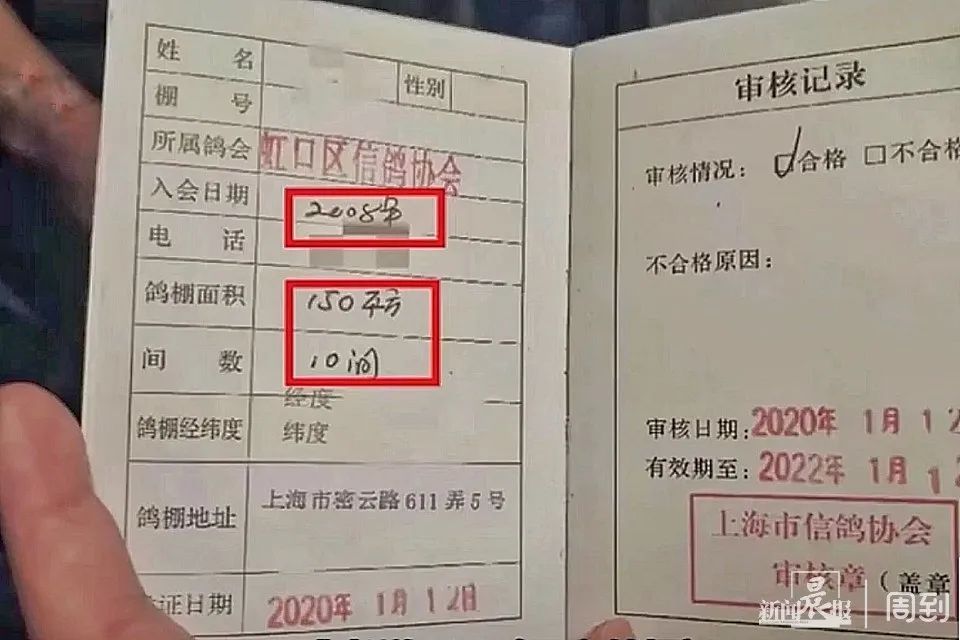 姓 名
性别
棚 号
所属鸽会 虹口区信鸽协会
入会日期 2008年
电 话
鸽棚面积 150平方
间 数 10间
鸽棚经纬度 经度
纬度
鸽棚地址 上海市密云路611弄5号
证日期 2020年 1月 12日
审核记录
审核情况: ☑合格 □不合格
不合格原因:
审核日期: 2020年 1月 12
有效期至: 2022年 1月 1
上海市信鸽协会
审核章 (盖章
新闻晨报 周到